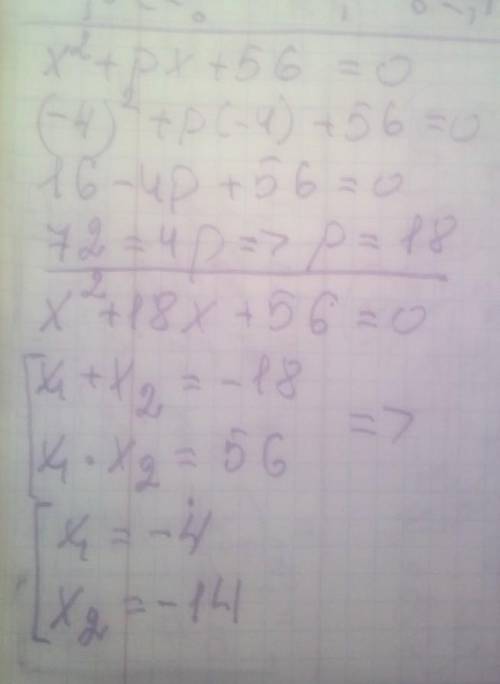 x² + px + 56 = 0
(-4)² + p(-4) + 56 = 0
16 - 4p + 56 = 0
72 = 4p => p = 18
x² + 18x + 56 = 0
[ x₁ + x₂ = -18
x₁ · x₂ = 56 =>
[ x₁ = -4
x₂ = -14